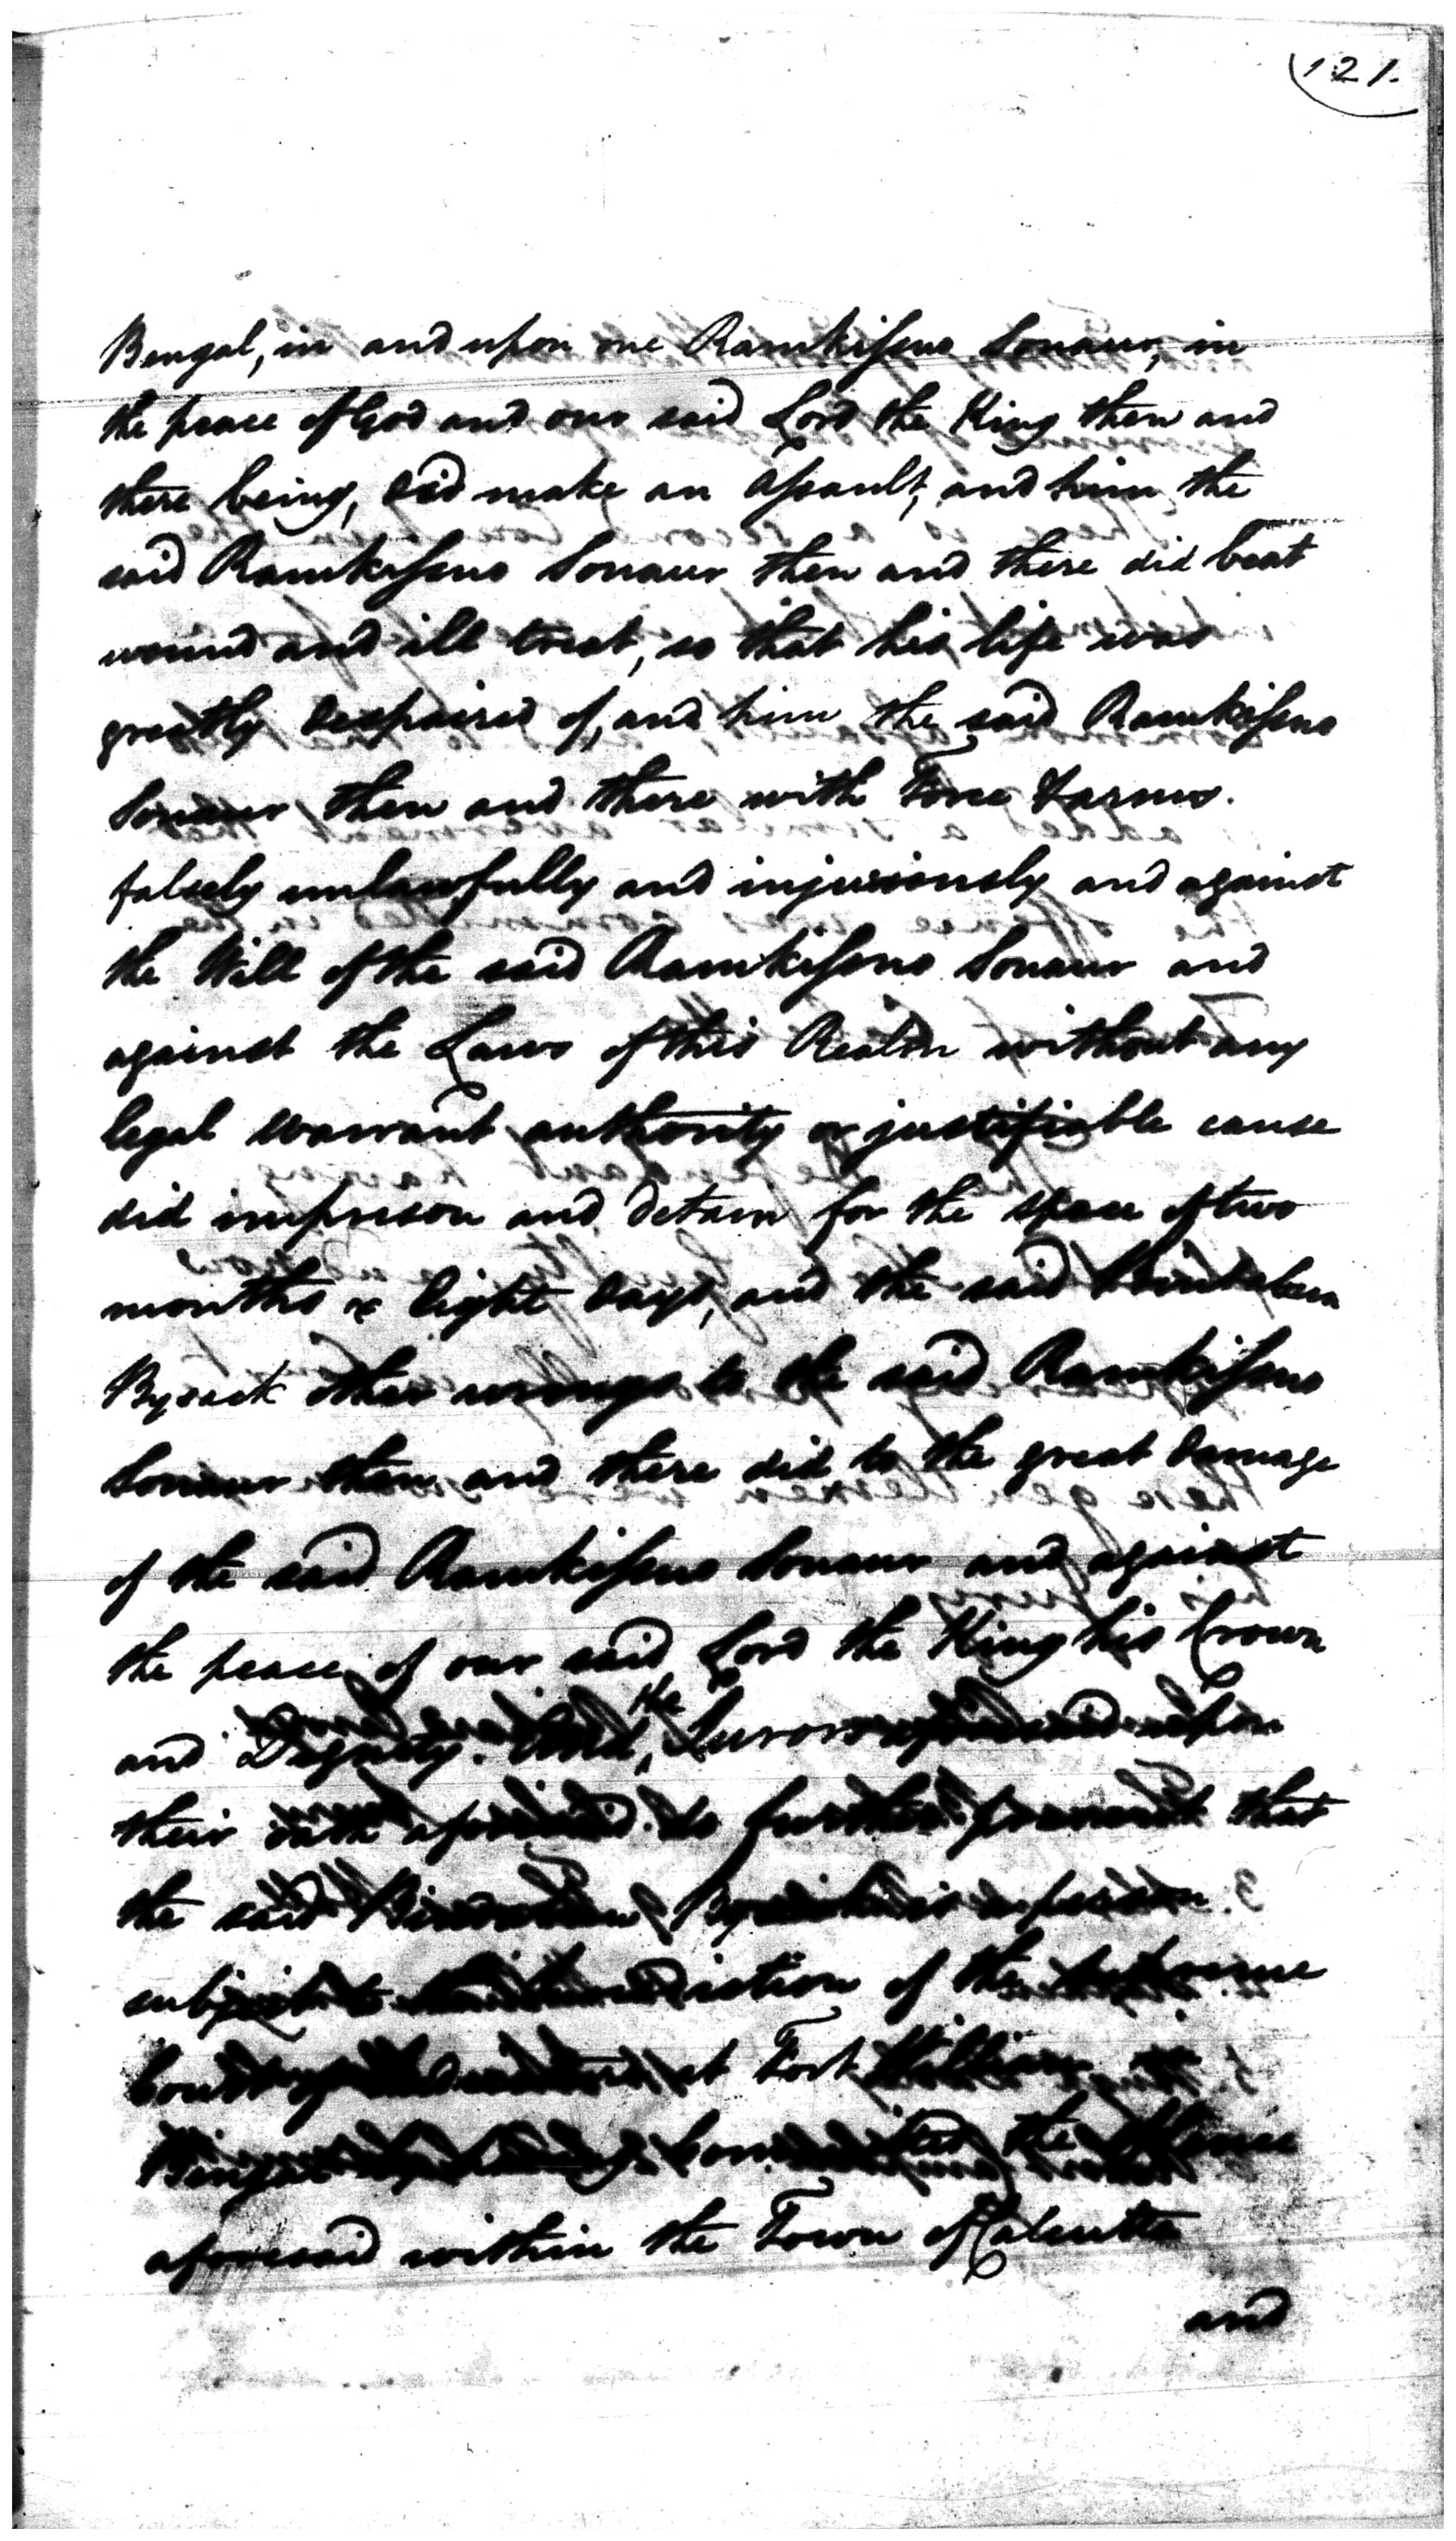 121.
Bengal, in and upon one Ramkissno Sonaur, in
the peace of God and our said Lord the King then and
there being, did make an assault, and him the
said Ramkissno Sonaur then and there did beat
wound and ill treat, so that his life was
greatly despaired of, and him the said Ramkissno
Sonaur then and there with Force & arms.
falsely unlawfully and injuriously and against
the Will of the said Ramkissno Sonaur and
against the Laws of this Realm without any
legal warrant authority or justifiable cause
did imprison and detain for the space of two
months & Eight days, and the said
Bysack other wrongs to the said Ramkissno
Sonaur then and there did to the great damage
of the said Ramkissno Sonaur and against
the peace of our said Lord the King his Crown
and Dignity. And, the Jurors aforesaid upon
their oath aforesaid do further present that
the said is a person
subject to the Jurisdiction of the Supreme
Court of at Fort William
Bengal committed the offence
aforesaid within the Town of Calcutta
and